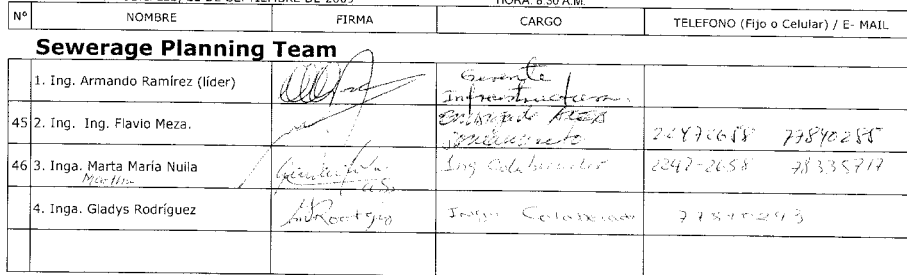 DE SEPTIEMBRE DE 2009 HORA: 8:30 A.M.
Nº NOMBRE FIRMA CARGO TELEFONO (Fijo o Celular) / E- MAIL
Sewerage Planning Team
1. Ing. Armando Ramírez (líder) Gerente
Infraestructura.
45 2. Ing. Ing. Flavio Meza. Encargado
Saneamiento 22472658 77840255
46 3. Inga. Marta María Nuila Ing Colaborador 2247-2658 78335717
Martha
4. Inga. Gladys Rodríguez Colaborador